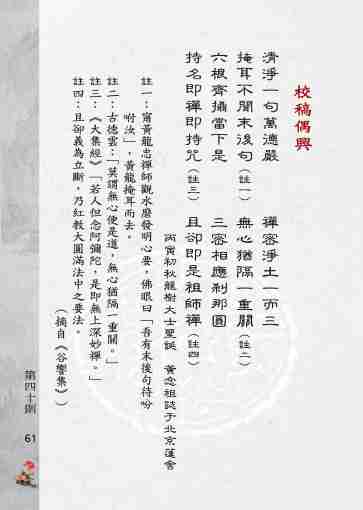 校稿偶興
清淨一句萬德嚴　禪密淨土一而三
掩耳不聞末後句（註一）　無心猶隔一重關（註二）
六根齊攝當下是　三密相應剎那圓
持名即禪即持咒（註三）　且卻即是祖師禪（註四）
丙寅初秋龍樹大士聖誕　黃念祖誌于北京蓮舍
註一：甯黃龍忠禪師觀水磨發明心要，佛眼曰「吾有末後句待吩
咐汝」，黃龍掩耳而去。
註二：古德云：「莫謂無心便是道，無心猶隔一重關。」
註三：《大集經》「若人但念阿彌陀，是即無上深妙禪。」
註四：且卻義為立斷，乃紅教大圓滿法中之要法。
（摘自《谷響集》）
第四十期
61